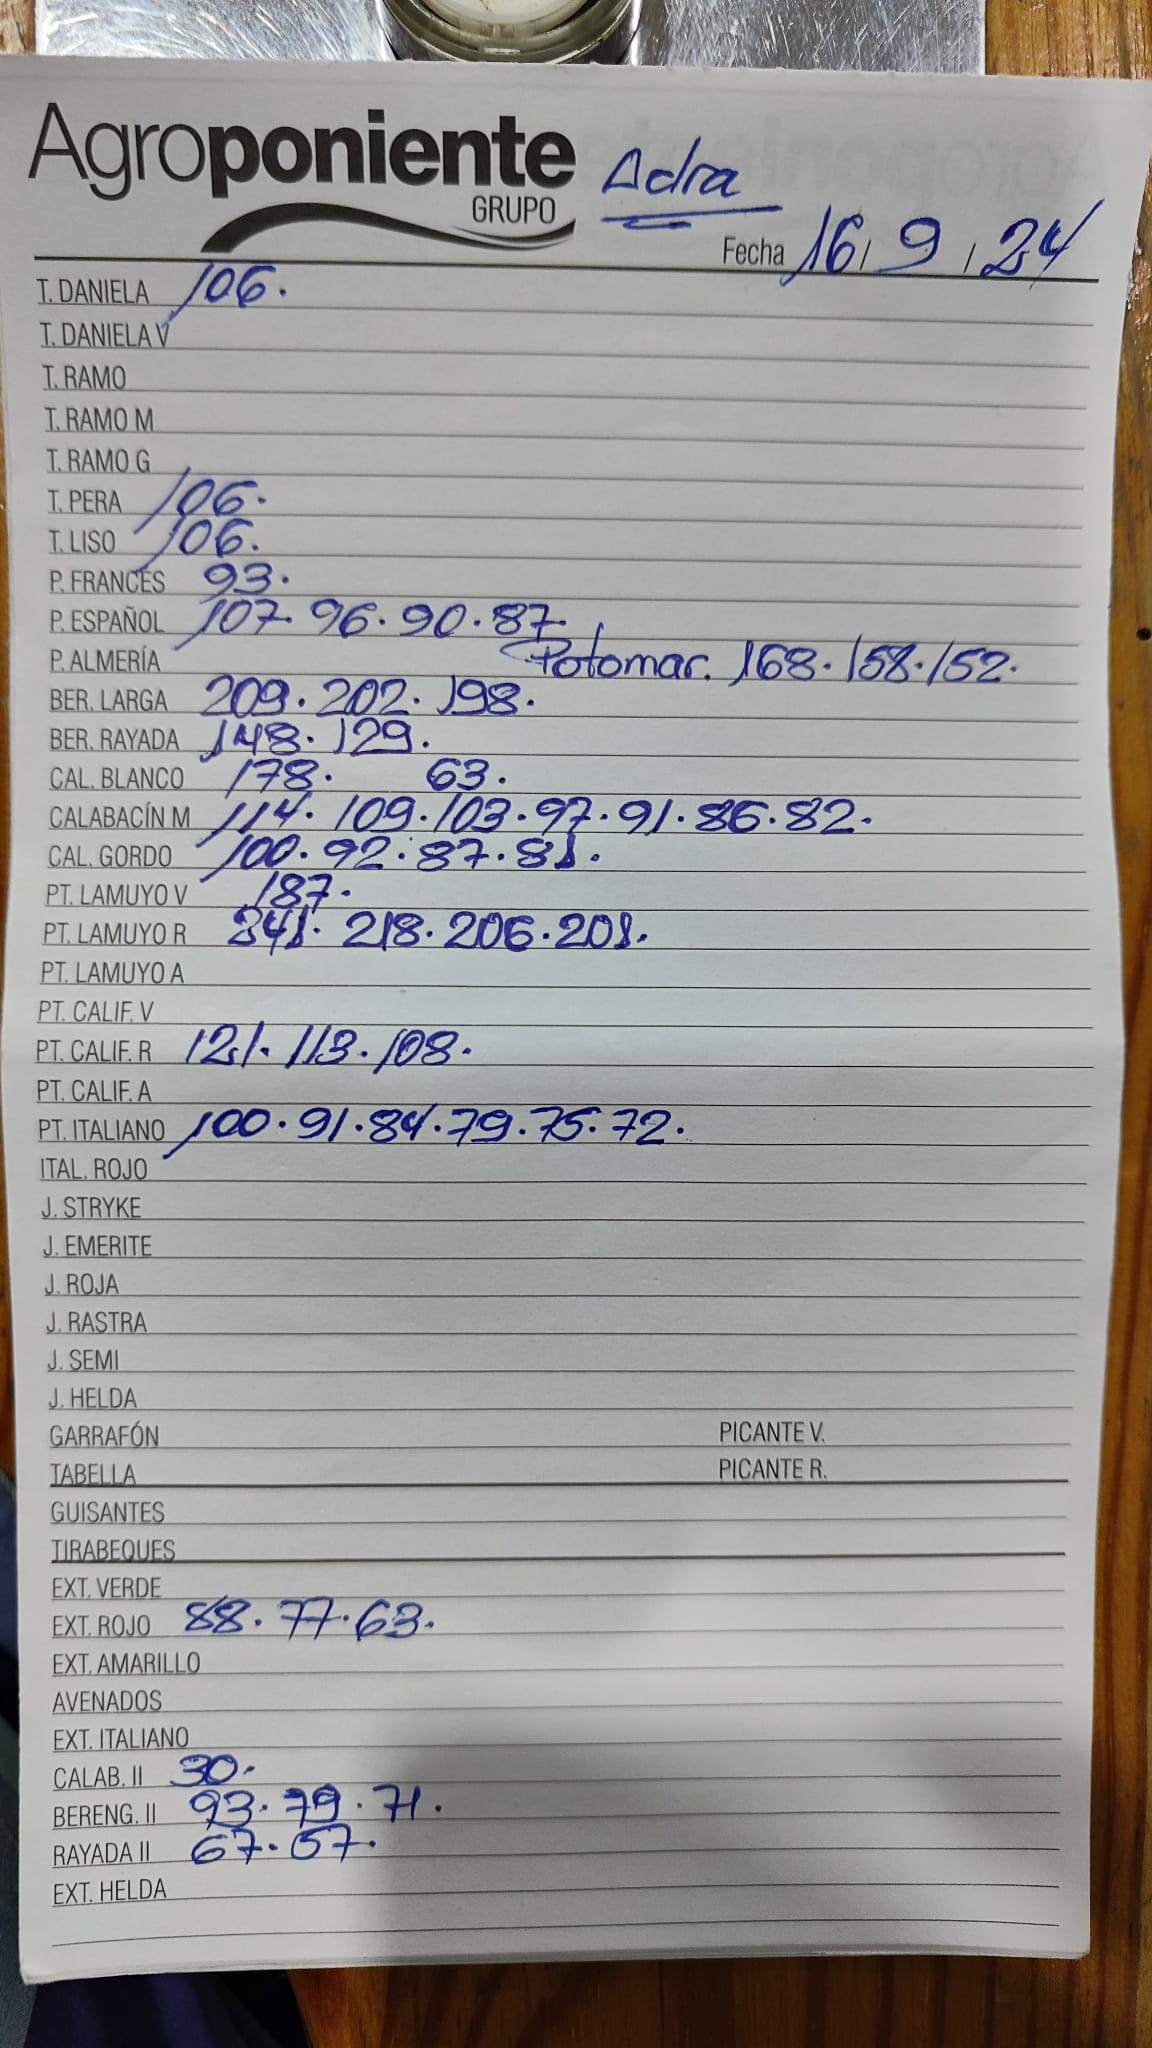 Agroponiente
GRUPO
Adra
Fecha 16/9/24
T. DANIELA 106.
T. DANIELA V
T. RAMO
T. RAMO M
T. RAMO G
T. PERA 106.
T. LISO 106.
P. FRANCÉS 93.
P. ESPAÑOL 107. 96. 90. 87.
P. ALMERÍA Potomar. 168. 158. 152.
BER. LARGA 209. 202. 198.
BER. RAYADA 148. 129.
CAL. BLANCO 178. 63.
CALABACÍN M 114. 109. 103. 97. 91. 86. 82.
CAL. GORDO 100. 92. 87. 81.
PT. LAMUYO V 187.
PT. LAMUYO R 218. 206. 201.
PT. LAMUYO A
PT. CALIF. V
PT. CALIF. R 121. 113. 108.
PT. CALIF. A
PT. ITALIANO 100. 91. 84. 79. 75. 72.
ITAL. ROJO
J. STRYKE
J. EMERITE
J. ROJA
J. RASTRA
J. SEMI
J. HELDA
GARRAFÓN PICANTE V.
TABELLA PICANTE R.
GUISANTES
TIRABEQUES
EXT. VERDE
EXT. ROJO 88. 77. 63.
EXT. AMARILLO
AVENADOS
EXT. ITALIANO
CALAB. II 30.
BERENG. II 93. 79. 71.
RAYADA II 67. 57.
EXT. HELDA